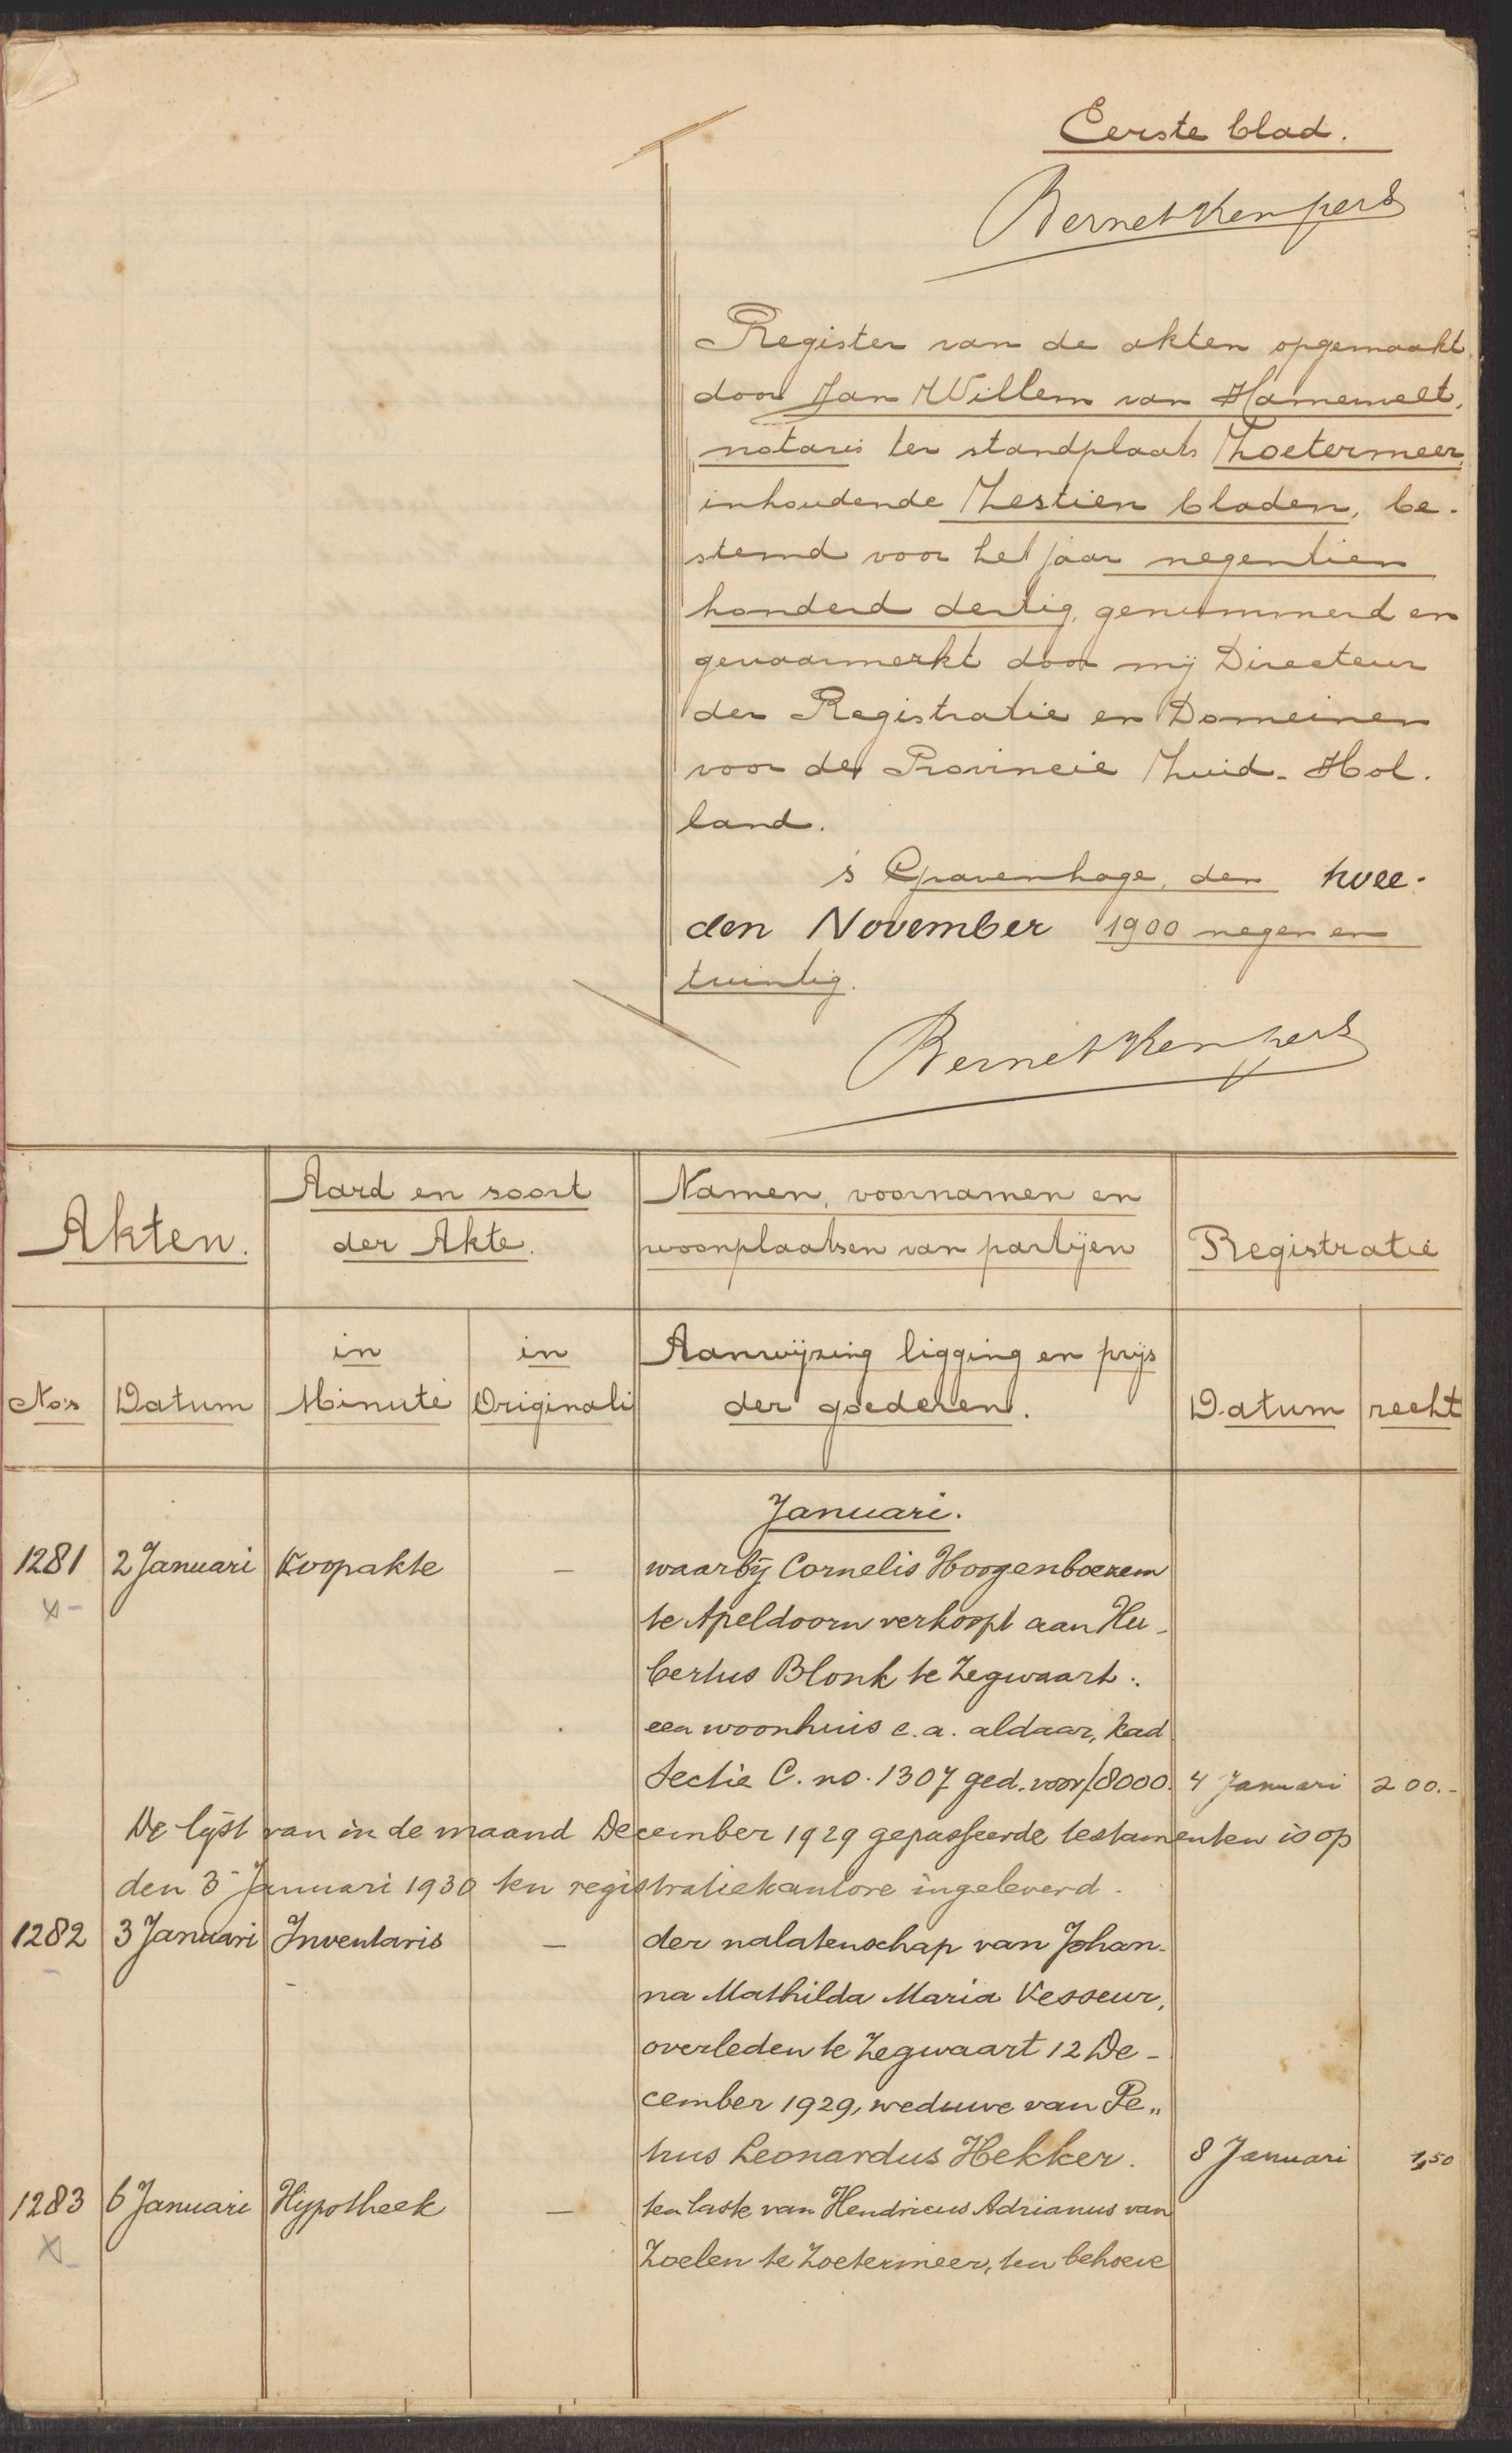 Eerste blad.
BernetKempers
Register van de akten opgemaakt
door Jan Willem van Hamewelt,
notaris ter standplaats Zoetermeer,
inhoudende Zestien bladen, be-
stemd voor het jaar negentien
honderd dertig, genummerd en
gewaarmerkt door mij Directeur
der Registratie en Domeinen
voor de Provincie Zuid-Hol-
land.
's Gravenhage, den twee-
den November 1900 negen en
twintig.
BernetKempers
Akten. Aard en soort der Akte. Namen, voornamen en woonplaatsen van partijen Registratie
Nos Datum in Minute in Originali Aanwijzing ligging en prijs der goederen. Datum recht
Januari.
1281 2 Januari Koopakte — waarbij Cornelis Hoogenboezem
te Apeldoorn verkoopt aan Hu-
bertus Blonk te Zegwaart:
een woonhuis c.a. aldaar, kad
Sectie C. no. 1307 ged. voor ƒ8000. 4 Januari 200.-
De lijst van in de maand December 1929 gepasseerde testamenten is op
den 3 Januari 1930 ten registratiekantore ingeleverd.
1282 3 Januari Inventaris — der nalatenschap van Johan-
na Mathilda Maria Vesseur,
overleden te Zegwaart 12 De-
cember 1929, weduwe van Pe„
trus Leonardus Hekker. 8 Januari 1,50
1283 6 Januari Hypotheek — ten laste van Hendricus Adrianus van
Zoelen te Zoetermeer, ten behoeve